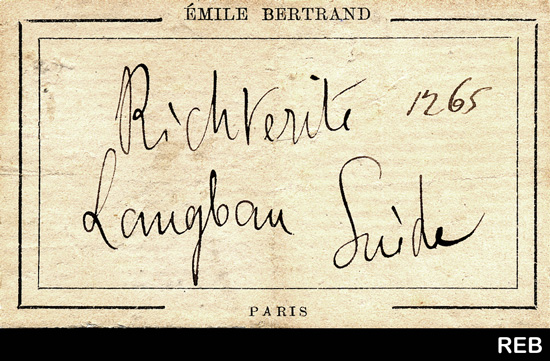 ÉMILE BERTRAND
Richterite 1265
Langban Suède
PARIS
REB